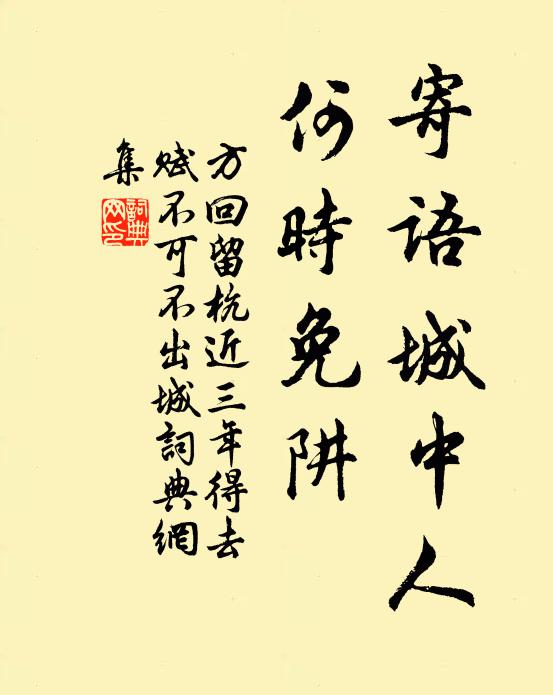 寄語城中人
何時免阱
方回留杭近三年得去
賦不可不出城詞典網
集
詞典
网印